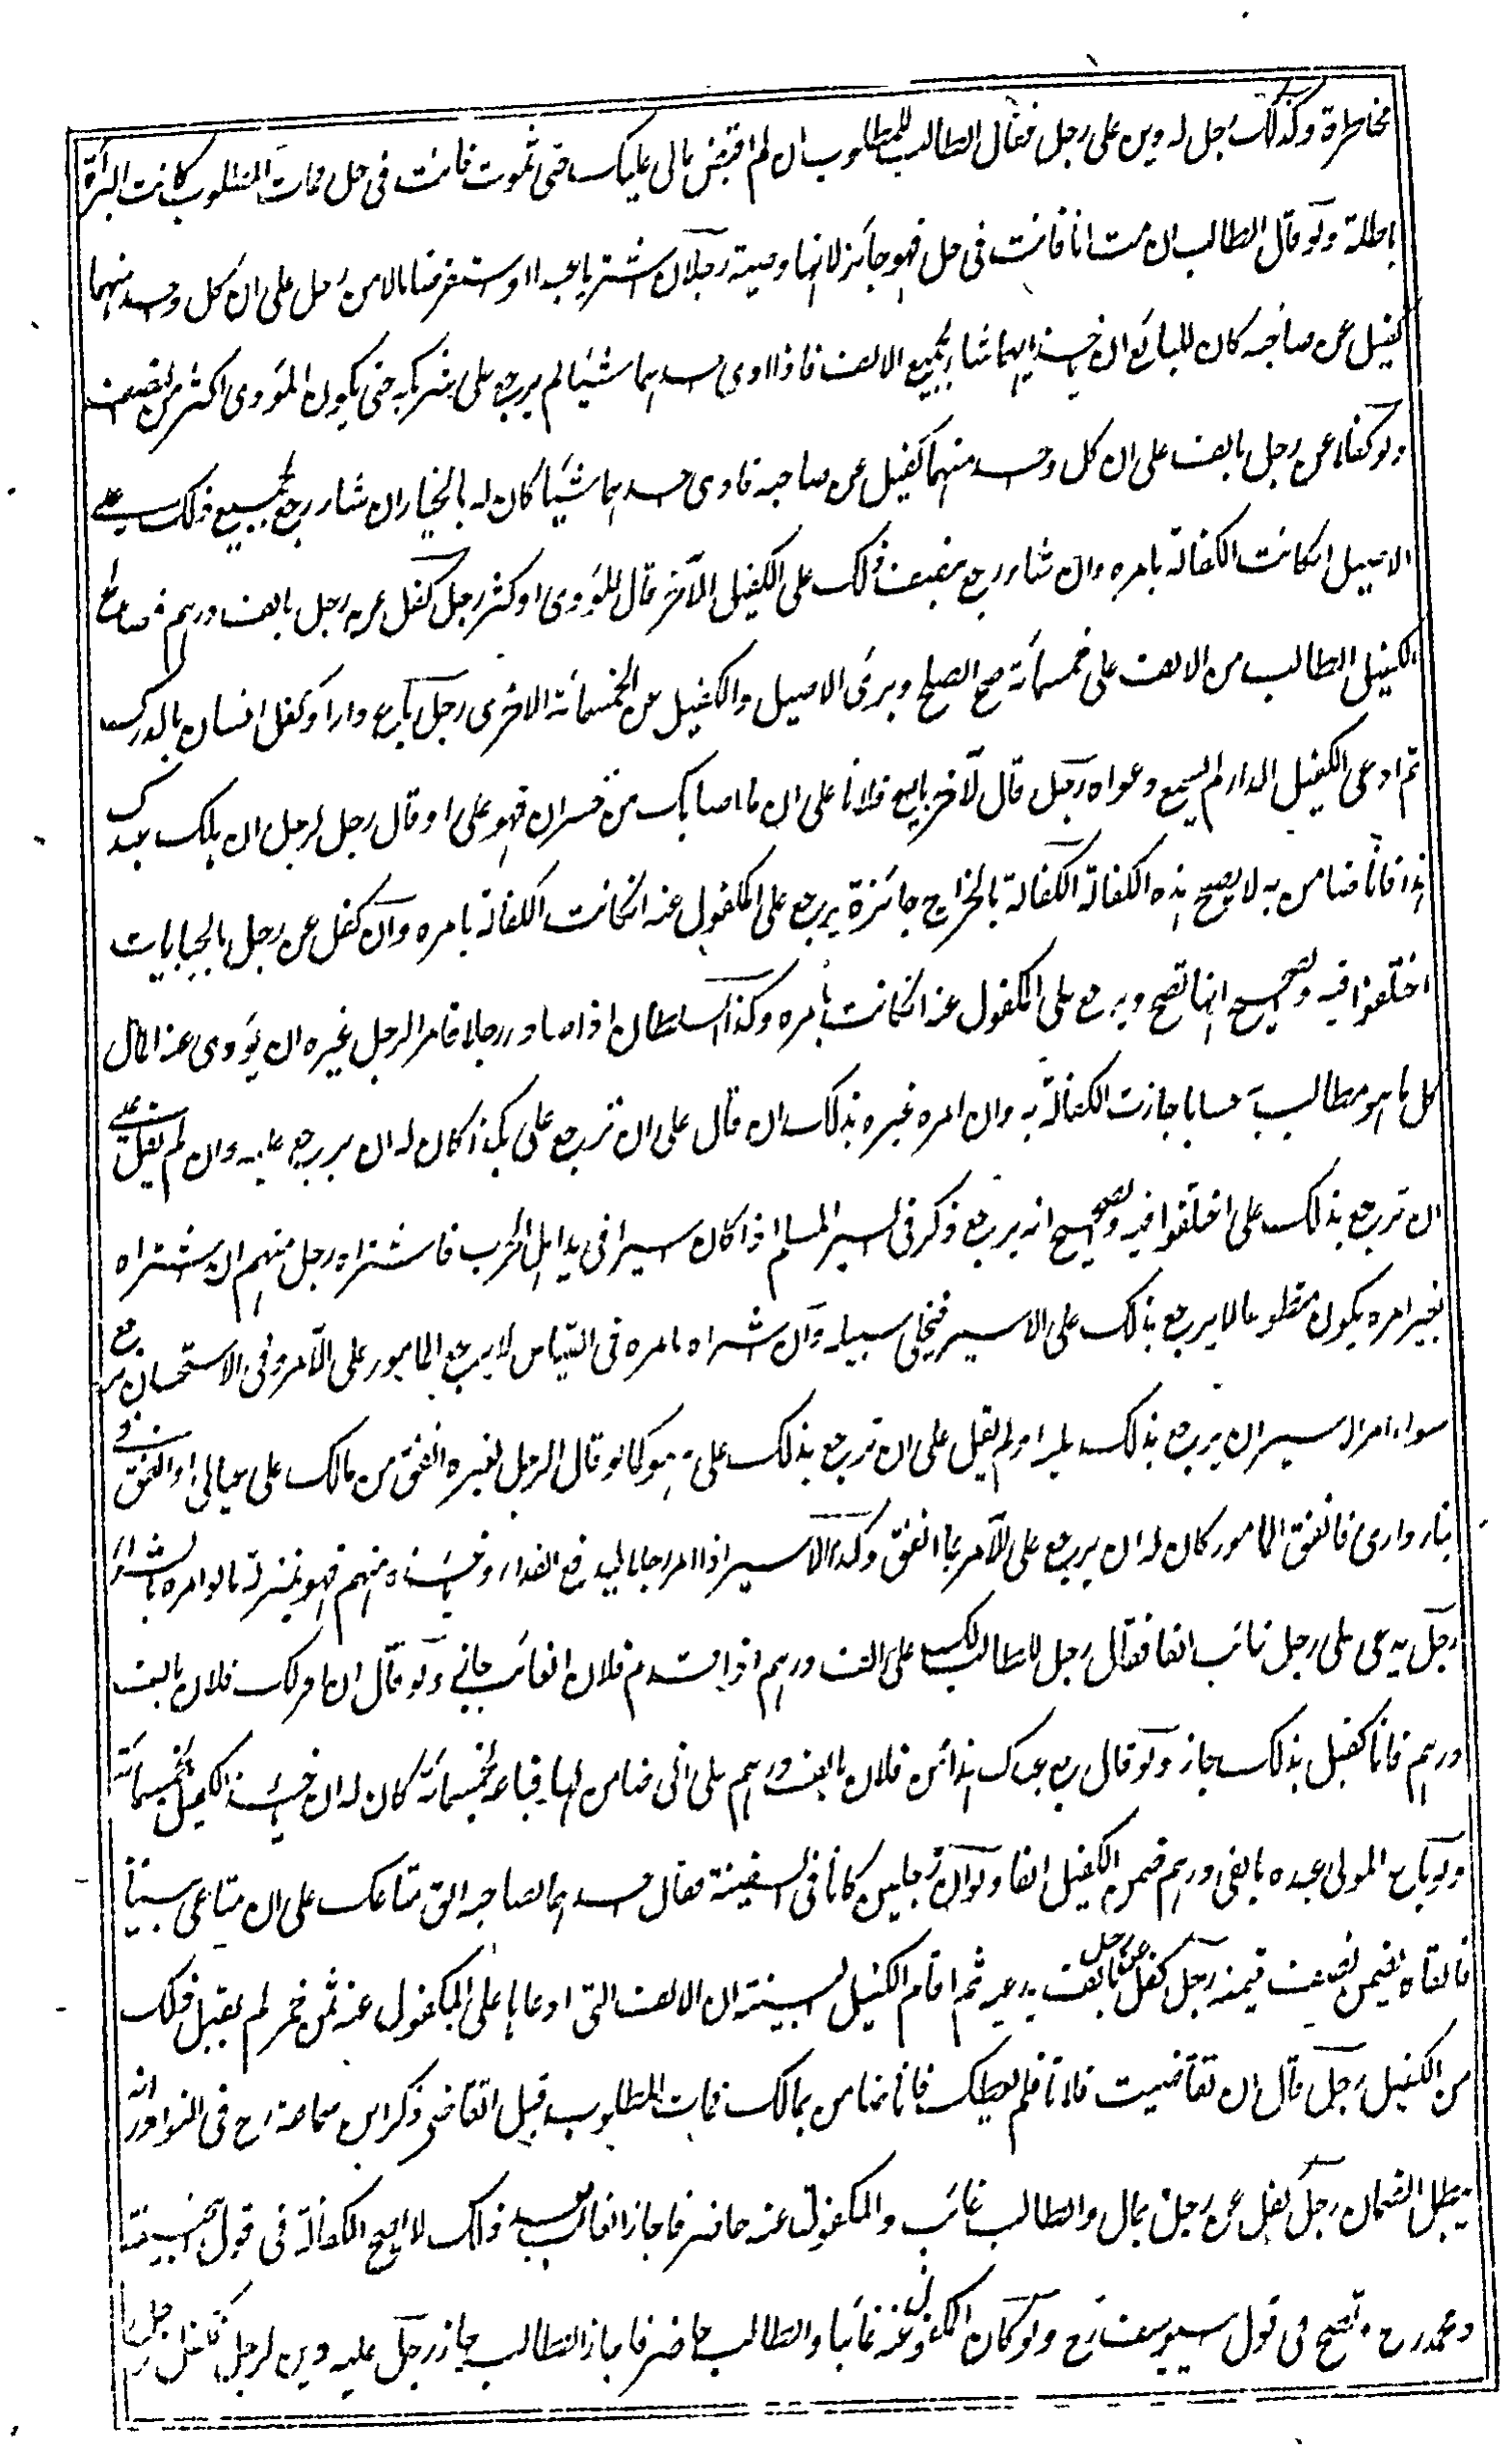 مخاطرة وكذلك رجل له دين على رجل فقال الطالب للمطلوب ان لم اقبض مالى عليك حتى تموت فانت فى حل فمات المطلوب كانت البرأة
باطلة ولو قال الطالب ان مت انا فانت فى حل فهو جائز لانها وصية رجلان اشتريا عبدا او استقرضا مالا من رجل على ان كل واحد منهما
كفيل عن صاحبه كان للبائع ان ياخذ ايهما شاء بجميع الالف فاذا ادى احدهما شيئا لم يرجع على شريكه حتى يكون المؤدى اكثر من النصف
ولو كفلا عن رجل بالف على ان كل واحد منهما كفيل عن صاحبه فادى احدهما شيئا كان له بالخيار ان شاء رجع بجميع ذلك على
الاصيل ان كانت الكفالة بامره وان شاء رجع بنصف ذلك على الكفيل الآخر قل المؤدى او كثر رجل كفل عن رجل بالف درهم فصالح
الكفيل الطالب من الالف على خمسمائة صح الصلح وبرئ الاصيل والكفيل عن الخمسمائة الاخرى رجل باع دارا وكفل انسان بالدرك
ثم ادعى الكفيل الدار لم يسمع دعواه رجل قال لآخر بايع فلانا على ان ما اصابك من خسران فهو على او قال رجل لرجل ان هلك عبدك
هذا فانا ضامن به لا يصح هذه الكفالة الكفالة بالخراج جائزة يرجع على المكفول عنه ان كانت الكفالة بامره وان كفل عن رجل بالجبايات
اختلفوا فيه والصحيح انها تصح ويرجع على المكفول عنه ان كانت بامره وكذا السلطان اذا صادر رجلا فامر الرجل غيره ان يؤدى عنه المال
كل ما هو مطالب به حسا جازت الكفالة به وان امره غيره بذلك ان قال على ان ترجع على بكذا كان له ان يرجع عليه وان لم يقل على
ان ترجع بذلك على اختلفوا فيه والصحيح انه يرجع ذكر فى السير المسلم اذا كان اسيرا فى يد اهل الحرب فاشتراه رجل منهم ان اشتراه
بغير امره يكون متطوعا لا يرجع بذلك على الاسير فيخلى سبيله وان اشتراه بامره فى القياس لا يرجع المامور على الآمر وفى الاستحسان يرجع
سواء امر الاسير ان يرجع بذلك عليه او لم يقل على ان ترجع بذلك على وهو كما لو قال الرجل لغيره انفق من مالك على عيالى او انفق فى
بناء دارى فانفق المامور كان له ان يرجع على الآمر بما انفق وكذا الاسير اذا امر رجلا ليدفع الفداء وياخذه منهم فهو بمنزلة ما لو امره بالشراء
رجل يدعى على رجل غائب الفا فقال رجل للطالب لك على الف درهم اذا قدم فلان الغائب ولو قال ان اقر لك فلان بالف
درهم فانا كفيل بذلك جاز ولو قال بع عبدك هذا من فلان بالف درهم على انى ضامن لها فباعه بخمسمائة كان له ان ياخذ الكفيل بخمسمائة
ولو باع المولى عبده بالفى درهم ضمن الكفيل الفا ولو ان رجلين كانا فى السفينة فقال احدهما لصاحبه الق متاعك على ان متاعى بيننا
فالقاه يضمن نصف قيمته رجل كفل عن رجل بالف يدعيه ثم اقام الكفيل البينة ان الالف التى ادعاها على المكفول عنه ثمن خمر لم يقبل ذلك
من الكفيل رجل قال ان تقاضيت فلانا فلم يعطك فانا ضامن بمالك فمات المطلوب قبل التقاضى ذكر ابن سماعة رح فى النوادر انه
يبطل الضمان رجل كفل عن رجل بمال والطالب غائب والمكفول عنه حاضر فاجاز الغائب بعد ذلك لا تصح الكفالة فى قول ابى حنيفة
ومحمد رح وتصح فى قول ابى يوسف رح ولو كان المكفول عنه غائبا والطالب حاضر فاجاز الطالب جاز رجل عليه دين لرجل فكفل رجل